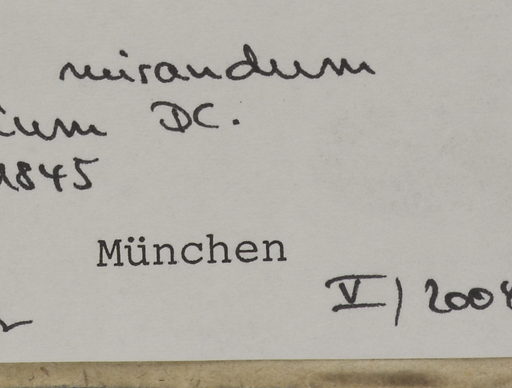 mirandum
ium DC.
1845
München
V/200